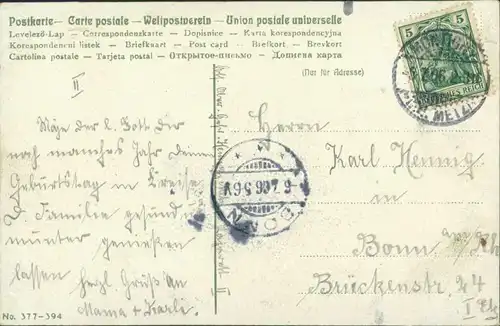 Postkarte - Carte postale - Weltpostverein - Union postale universelle
Levelező-Lap — Correspondenzkarte — Dopisnice — Karta korespondencyjna
Korespondenčni listek — Briefkaart — Post card — Brefkort — Brevkort
Cartolina postale — Tarjeta postal — Открытое-письмо — Дописна карта
(Nur für Adresse)
II
Möge der l. Gott dir
noch manches Jahr deinen
Geburtstag im Kreise
d. Familie gesund u.
munter genießen
lassen herzl. Gruß an
Mama + Karli.
No. 377-394
5 5
METZ
DEUTSCHES REICH
BONN
6.7.06.5-6V
Herrn
Karl Hennig
in
Bonn a/Rh
Brückenstr. 24
I Etg